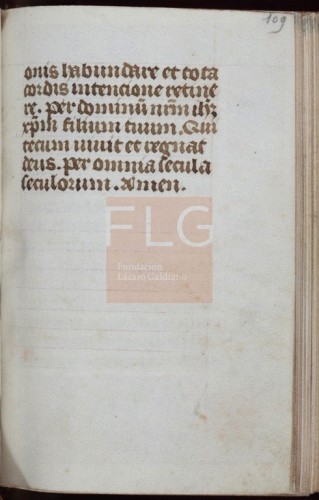 109
onis habundare et tota
cordis intencione retine
re. Per dominū nr̄m ihm̄
xp̄m filium tuum. Qui
tecum uiuit et regnat
deus. per omnia secula
seculorum. Amen.
FLG
Fundación
Lázaro Galdiano